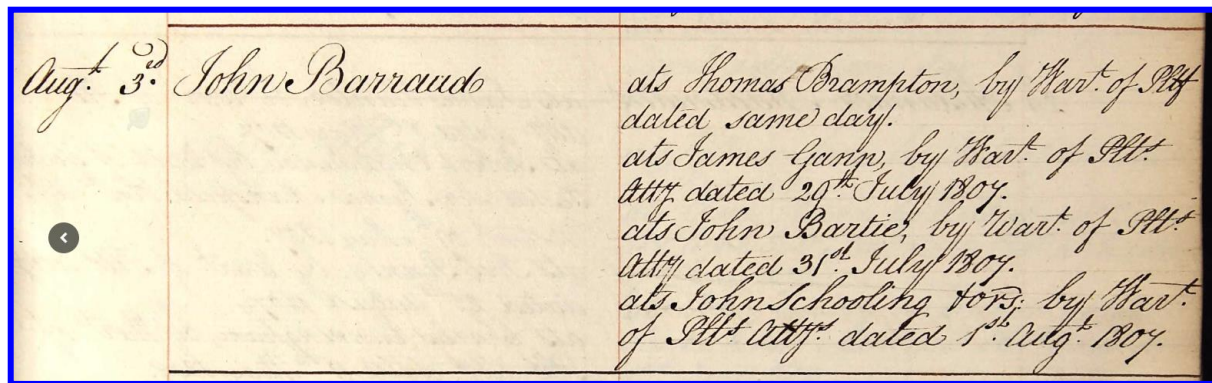 Augt. 3ed. John Barraud ats Thomas Brampton, by Wart. of Plt
dated same day.
ats James Gann, by Wart. of Plts.
Atty dated 29th July 1807.
ats John Bartie, by Wart. of Plts.
Atty dated 31st. July 1807.
ats John Schooling & ors; by Wart.
of Plts. Attys. dated 1st. Augt. 1807.